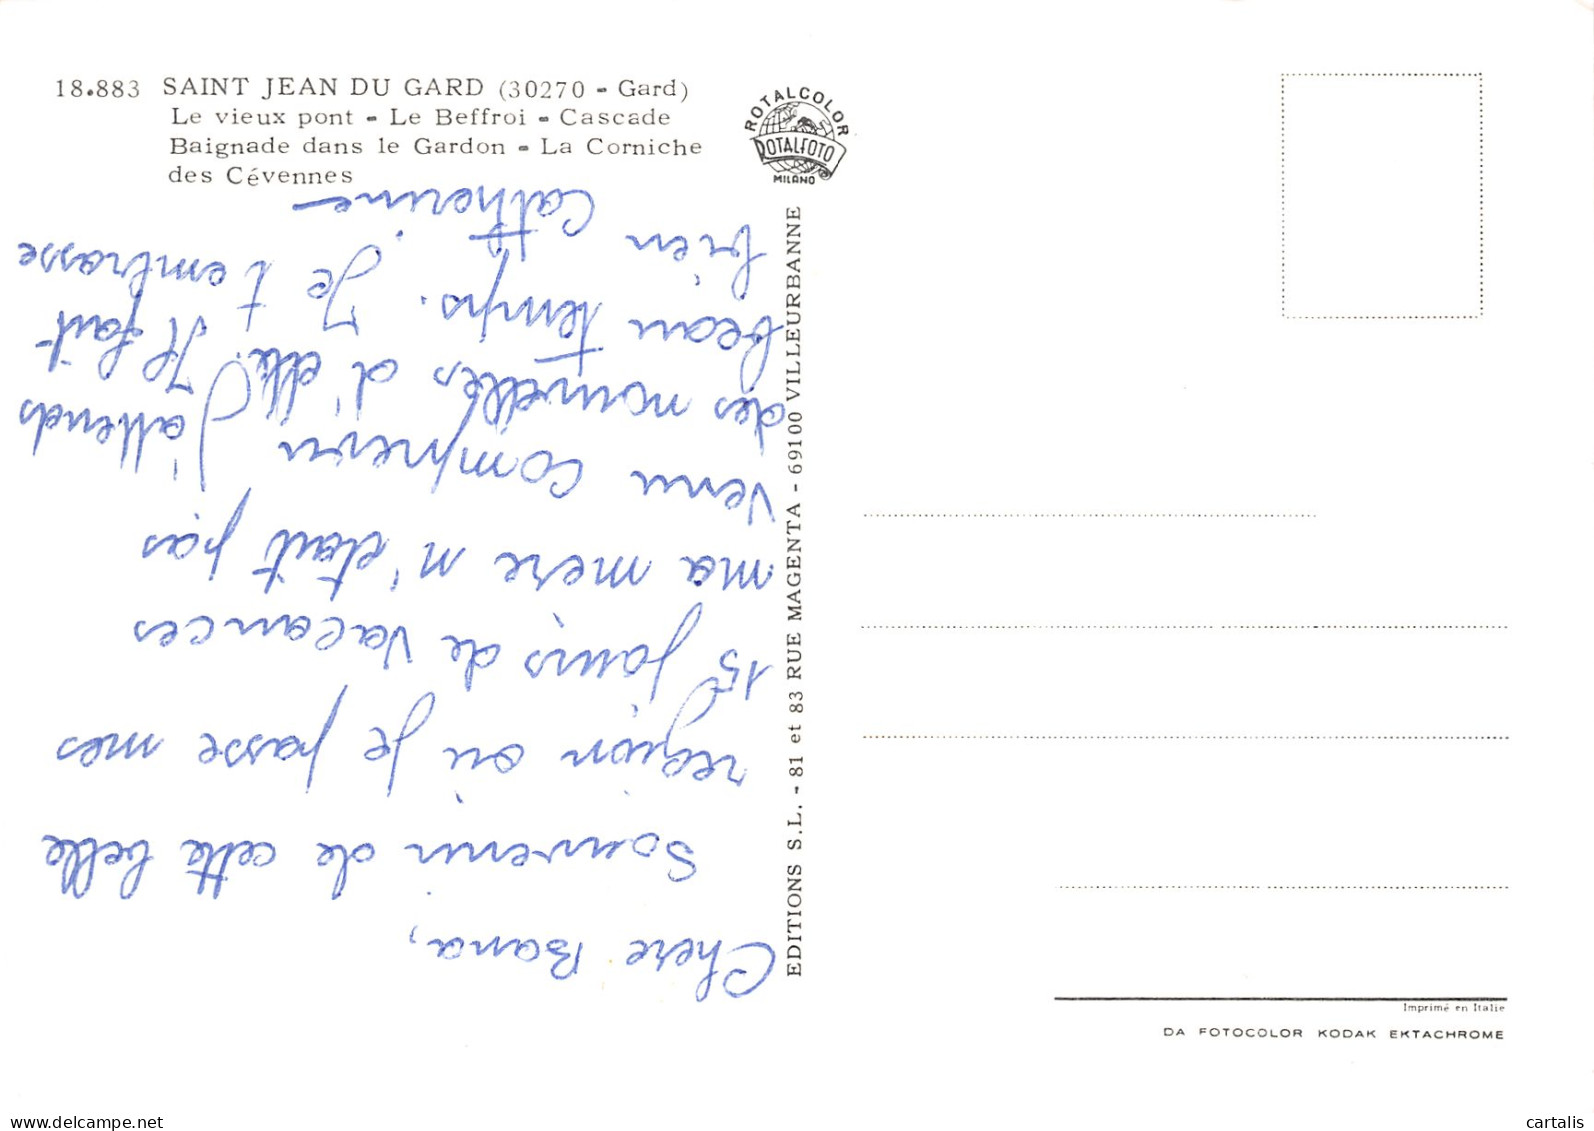 18.883 SAINT JEAN DU GARD (30270 - Gard)
Le vieux pont - Le Beffroi - Cascade
Baignade dans le Gardon - La Corniche
des Cévennes
ROTALCOLOR
ROTALFOTO
MILANO
EDITIONS S.L. - 81 et 83 RUE MAGENTA - 69100 VILLEURBANNE
Chere Bana,
Souvenir de cette belle
region où je passe mes
15 jours de vacances
ma mere n'était pas
venu J'attends
des nouvelles d'elle. Il fait
beau temps. Je t'embrasse
bien
Catherine
Imprimé en Italie
DA FOTOCOLOR KODAK EKTACHROME
delcampe.net
cartalis